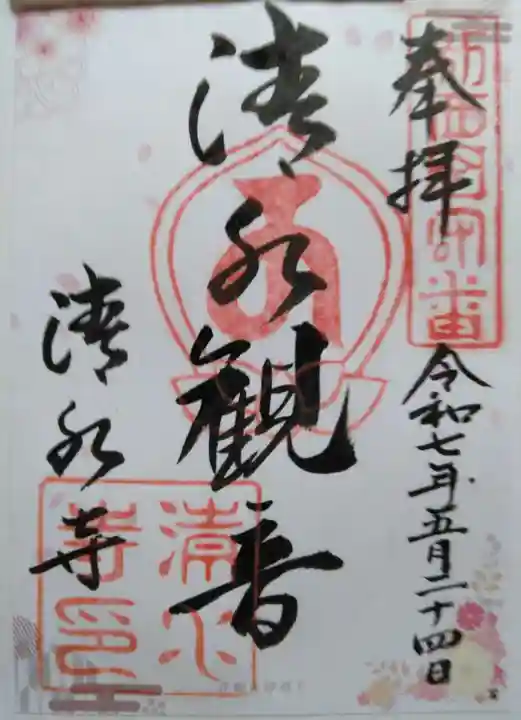 奉拝
令和七年五月二十四日
清水観音
清水寺
清水
寺印